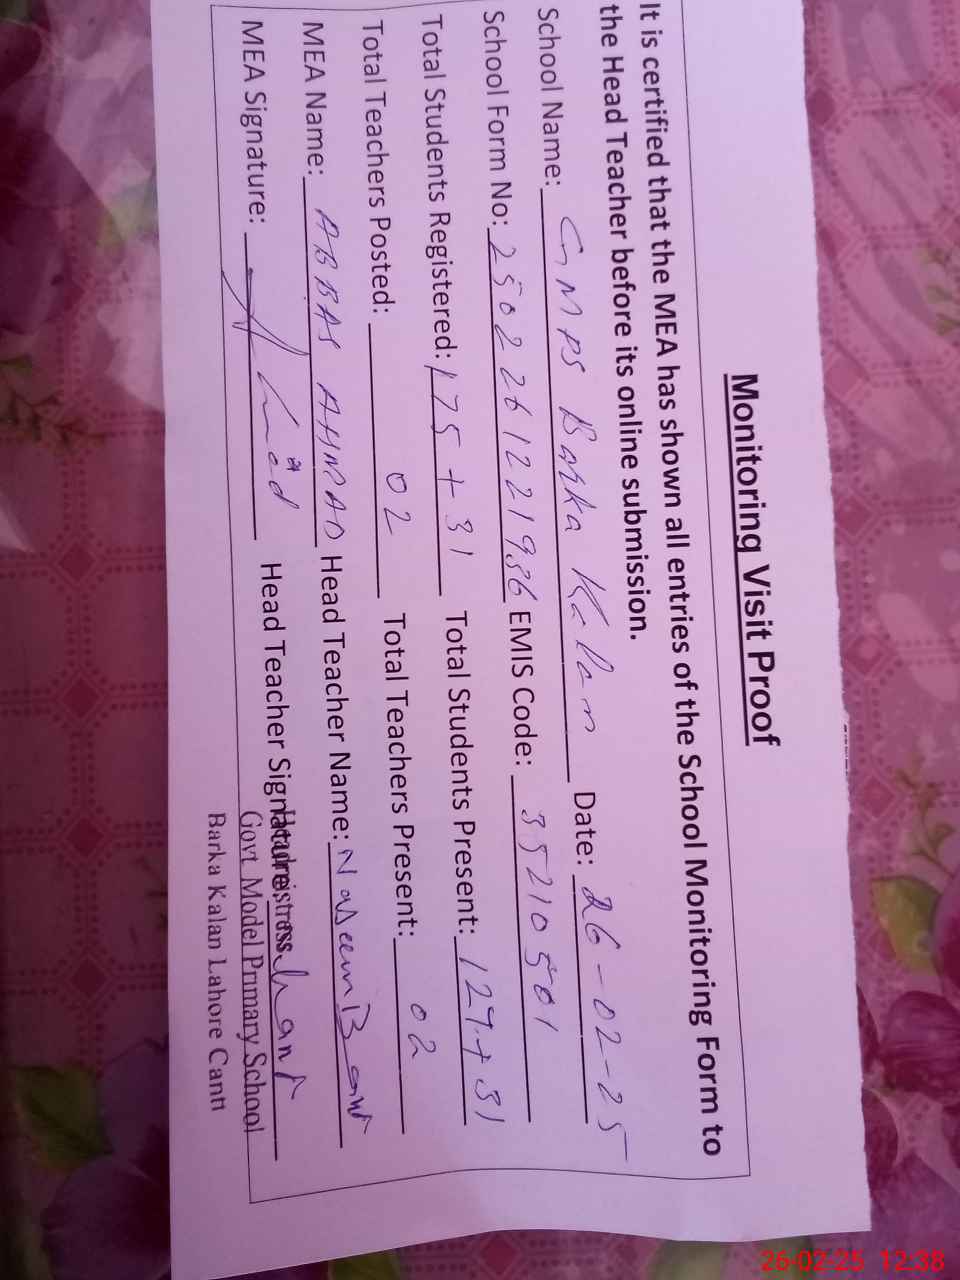 Monitoring Visit Proof
It is certified that the MEA has shown all entries of the School Monitoring Form to
the Head Teacher before its online submission.
School Name: GMPS Barka Kalan Date: 26-02-25
School Form No: 2502261221936 EMIS Code: 35210501
Total Students Registered: 175 + 31 Total Students Present: 127 + 31
Total Teachers Posted: 02 Total Teachers Present: 02
MEA Name: ABBAS AHMAD Head Teacher Name: Naseem B
MEA Signature: Head Teacher Signature:
Headmistress
Govt Model Primary School
Barka Kalan Lahore Cantt
26-02-25 12:38